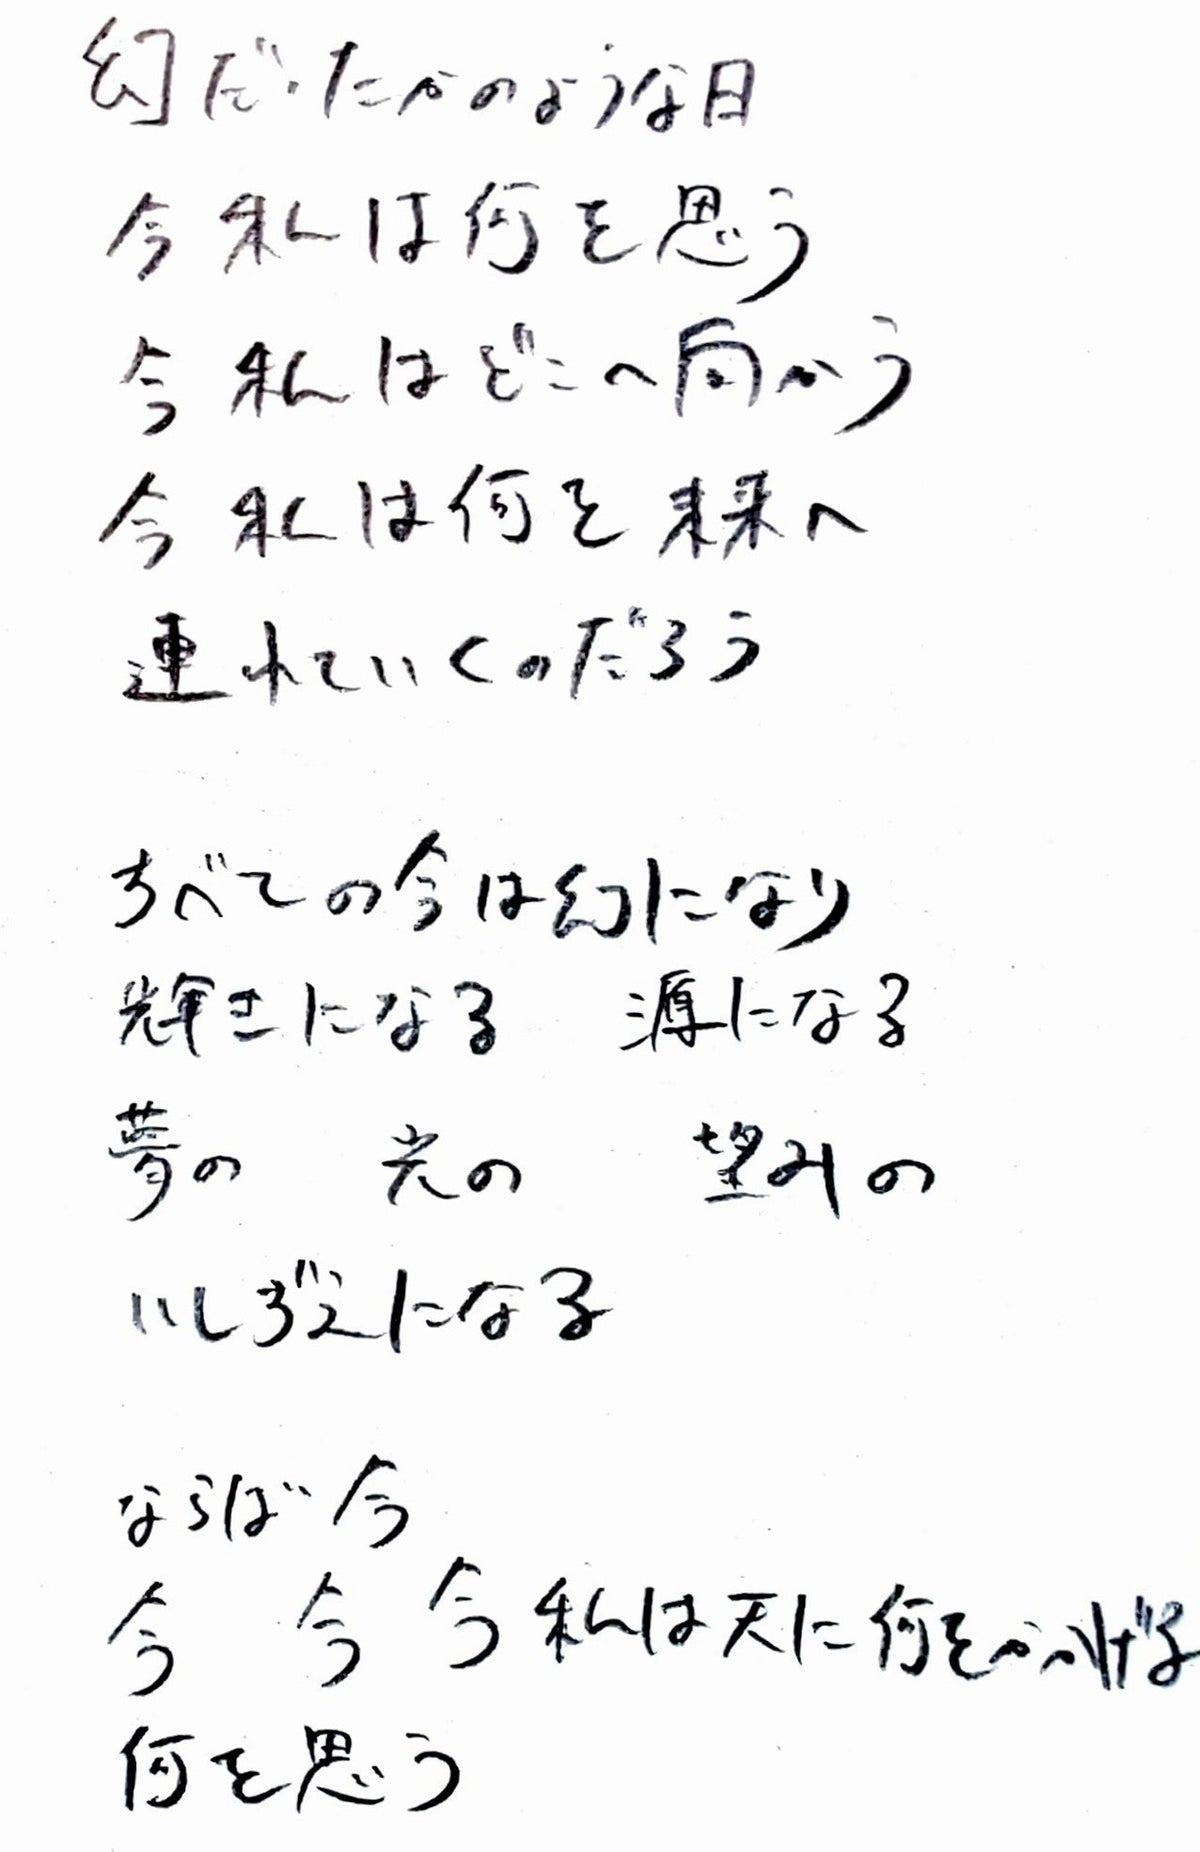 幻だったかのような日
今私は何を思う
今私はどこへ向かう
今私は何を未来へ
連れていくのだろう
すべての今は幻になり
輝きになる 源になる
夢の 光の 望みの
いしずえになる
ならば今
今 今 今私は天に何をかかげる
何を思う